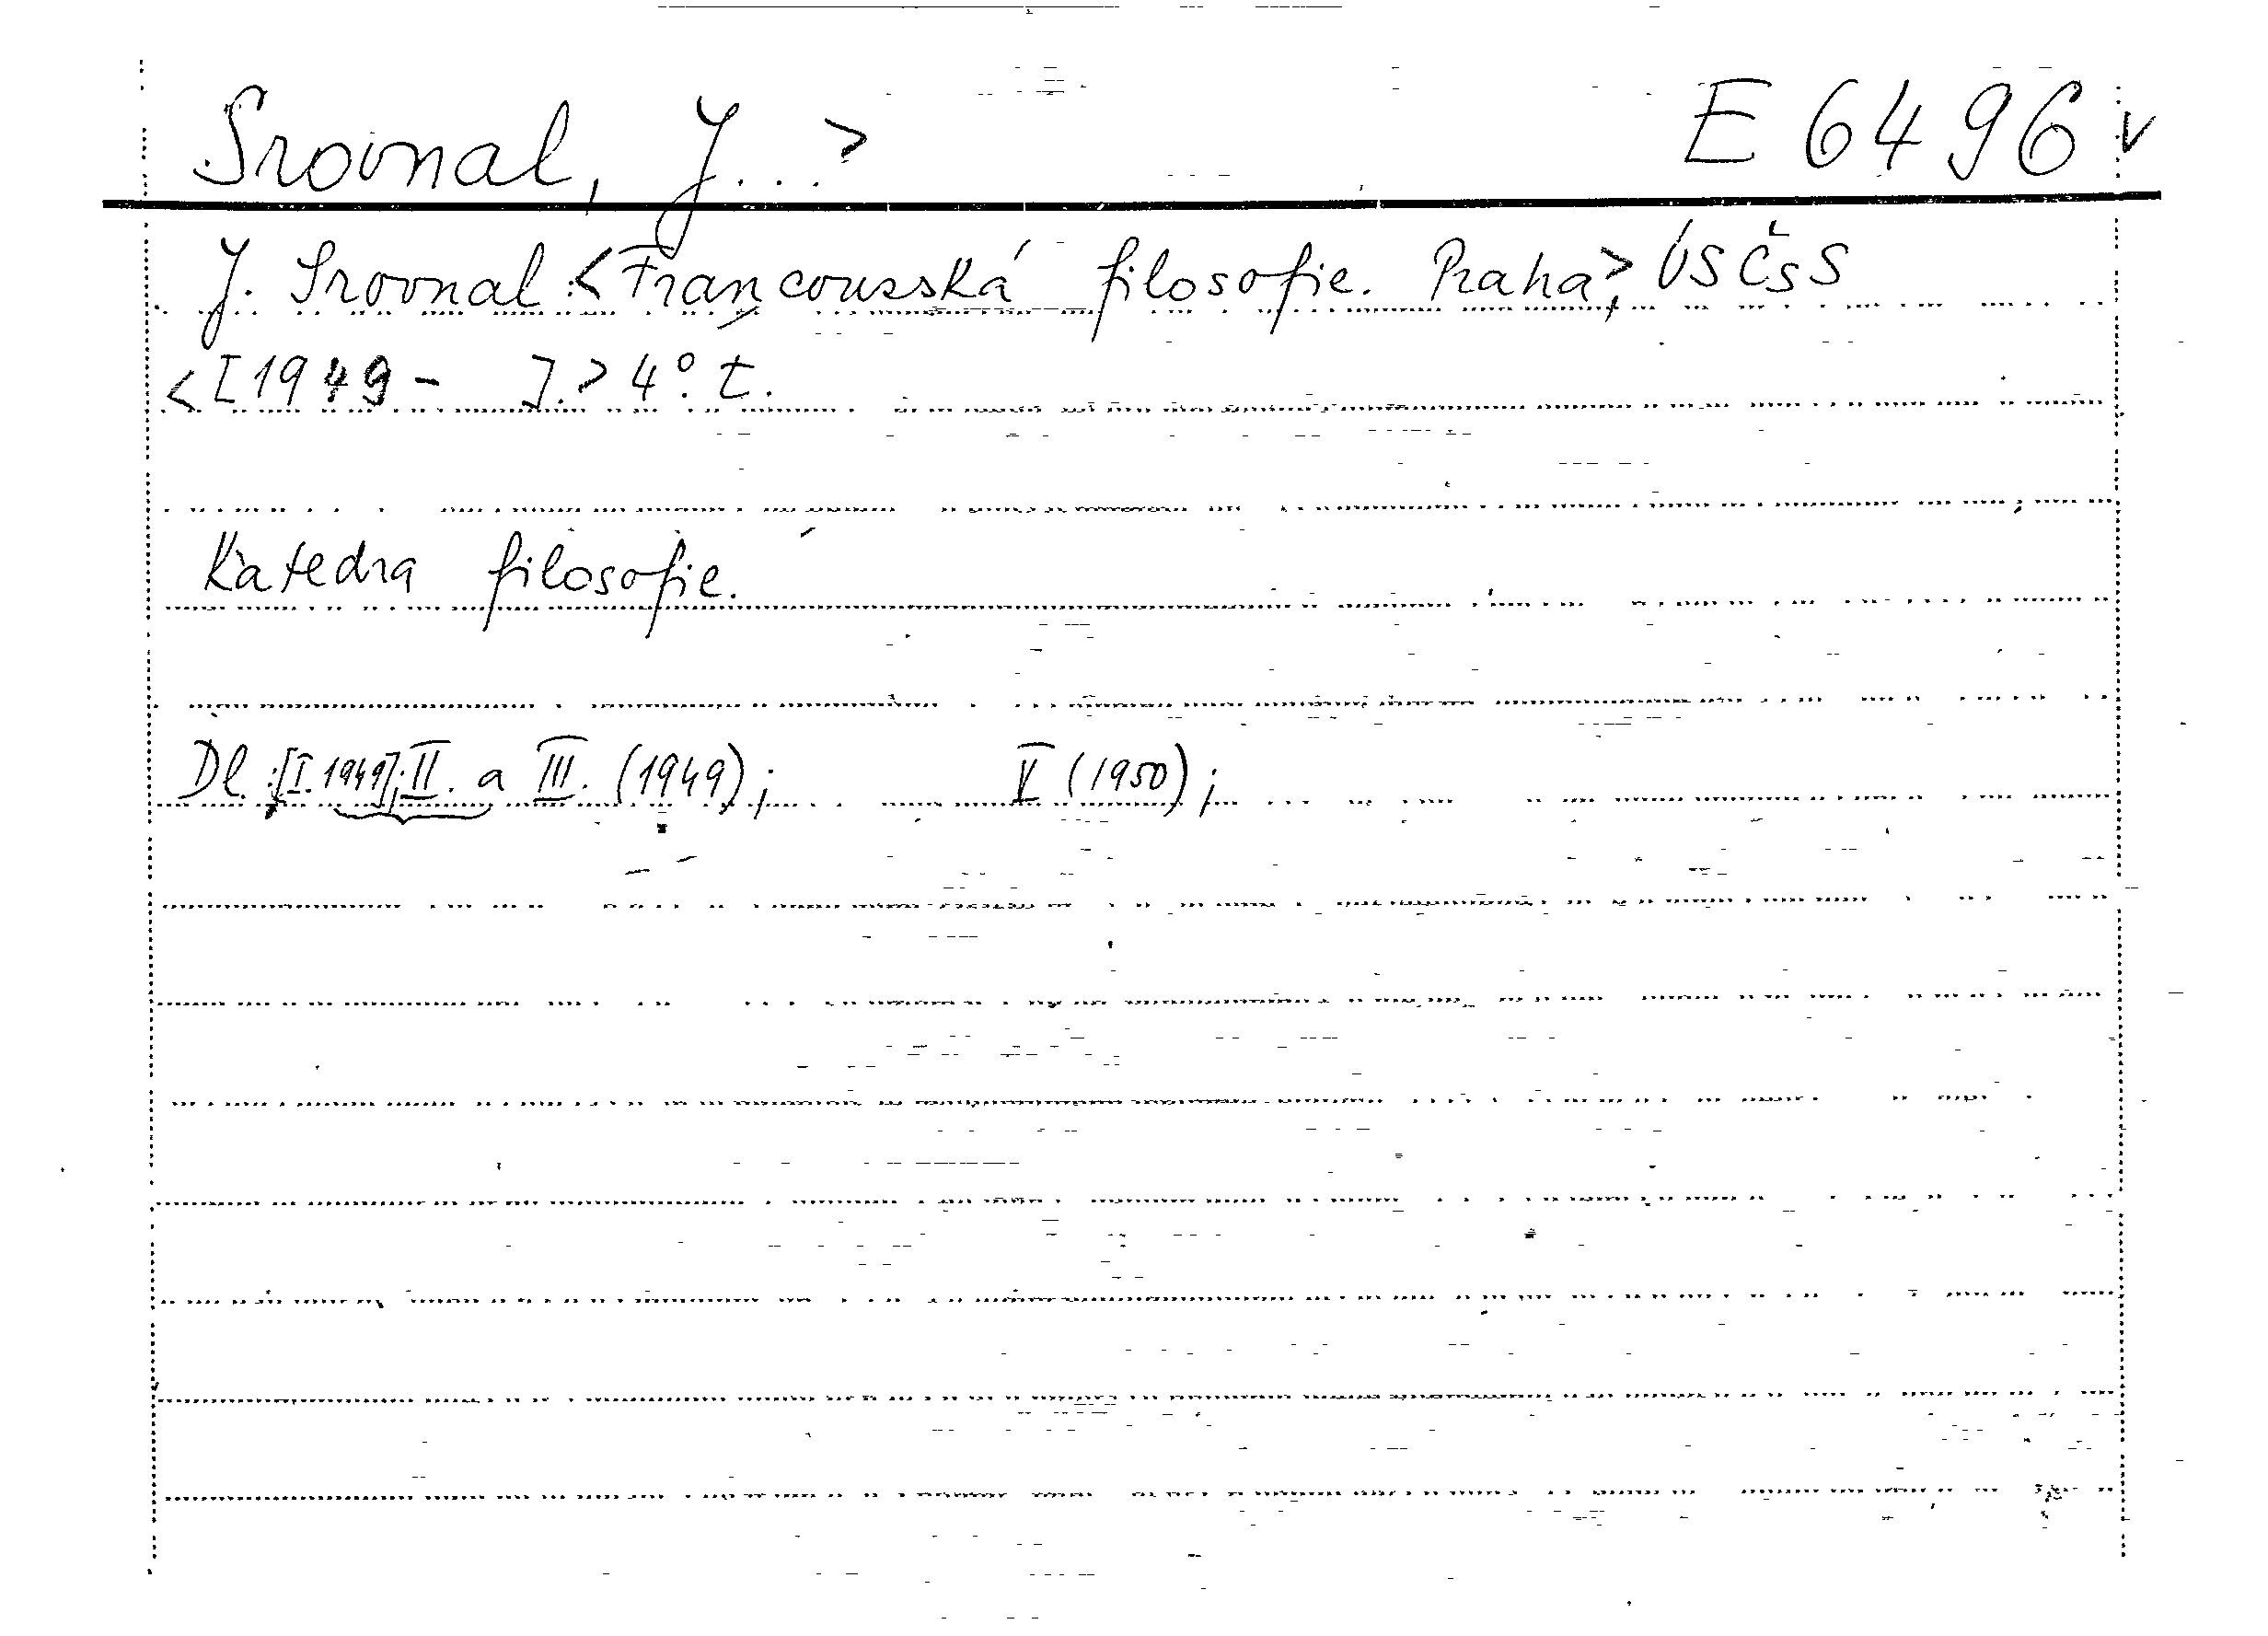 Srovnal, J...> E 6496 v
J. Srovnal:<Francouzská filosofie. Praha>, ÚSČsS
<[1949- ].> 4°. t.
Katedra filosofie.
Dl.:[I. 1949]; II. a III. (1949); V (1950);